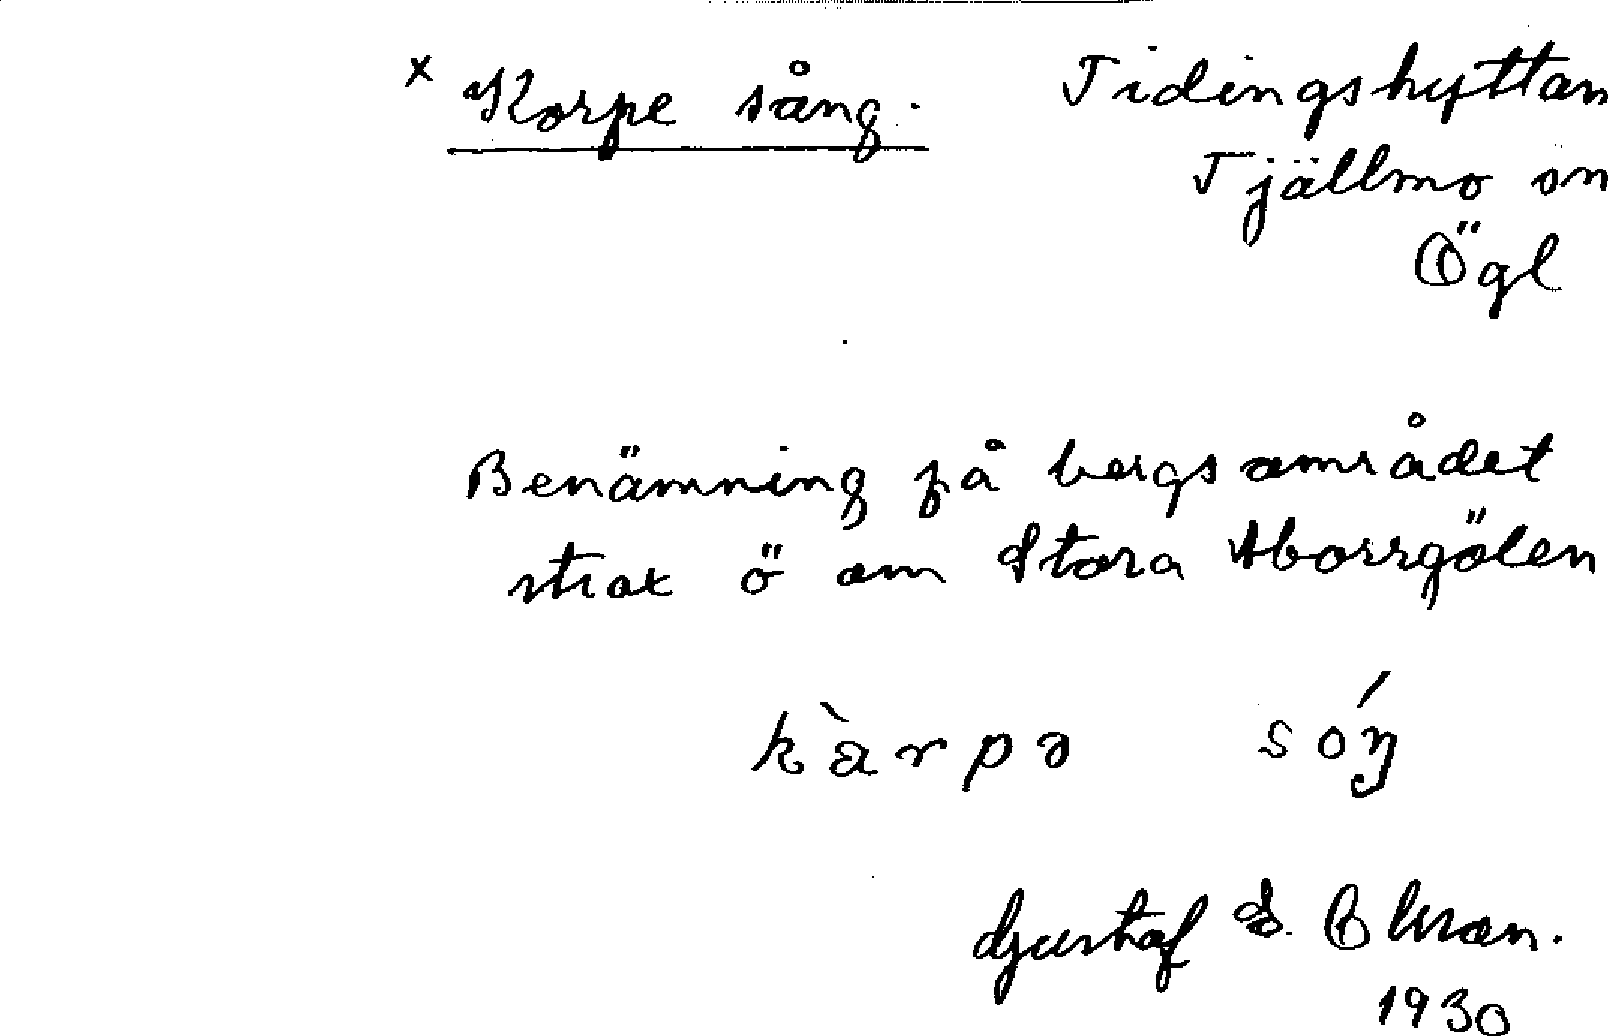 x Korpe sång.
Tidingshyttan
Tjällmo sn
Ögl
Benämning på bergsområdet
strax ö om Stora Aborrgölen
kàrpə sóŋ
Gustaf S. Olson.
1930